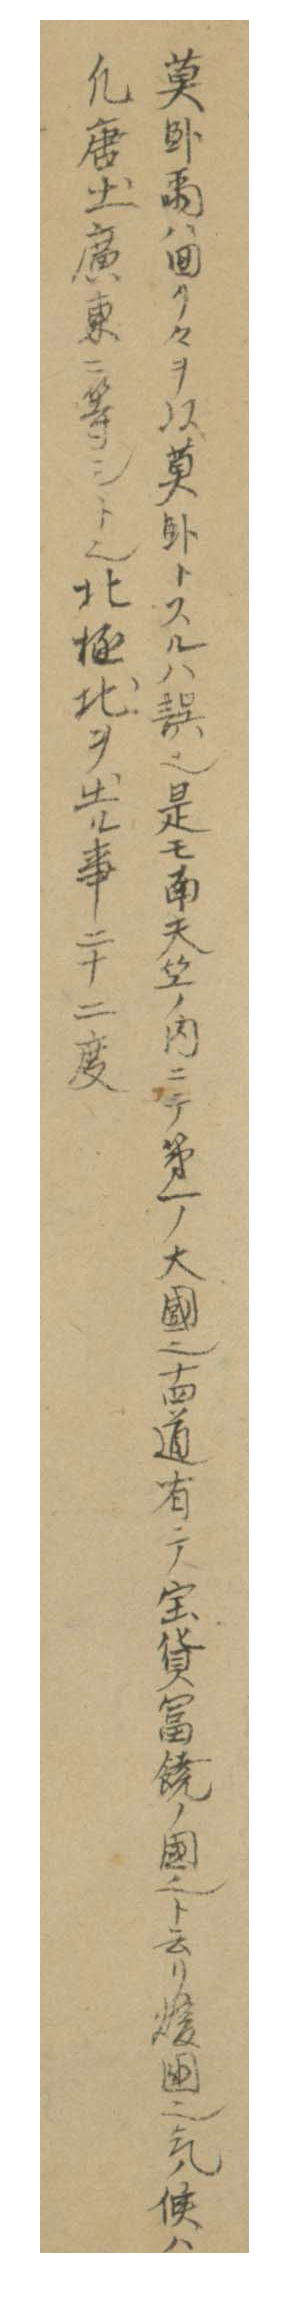 莫卧爾ハ回々ヲ以莫卧トスルハ誤也是モ南天竺ノ内ニテ第一ノ大國也十四道有テ宝貨冨饒ノ國也ト云リ煖国也気候ハ
凡唐土廣東ニ等シト也北極地ヲ出ル事二十二度